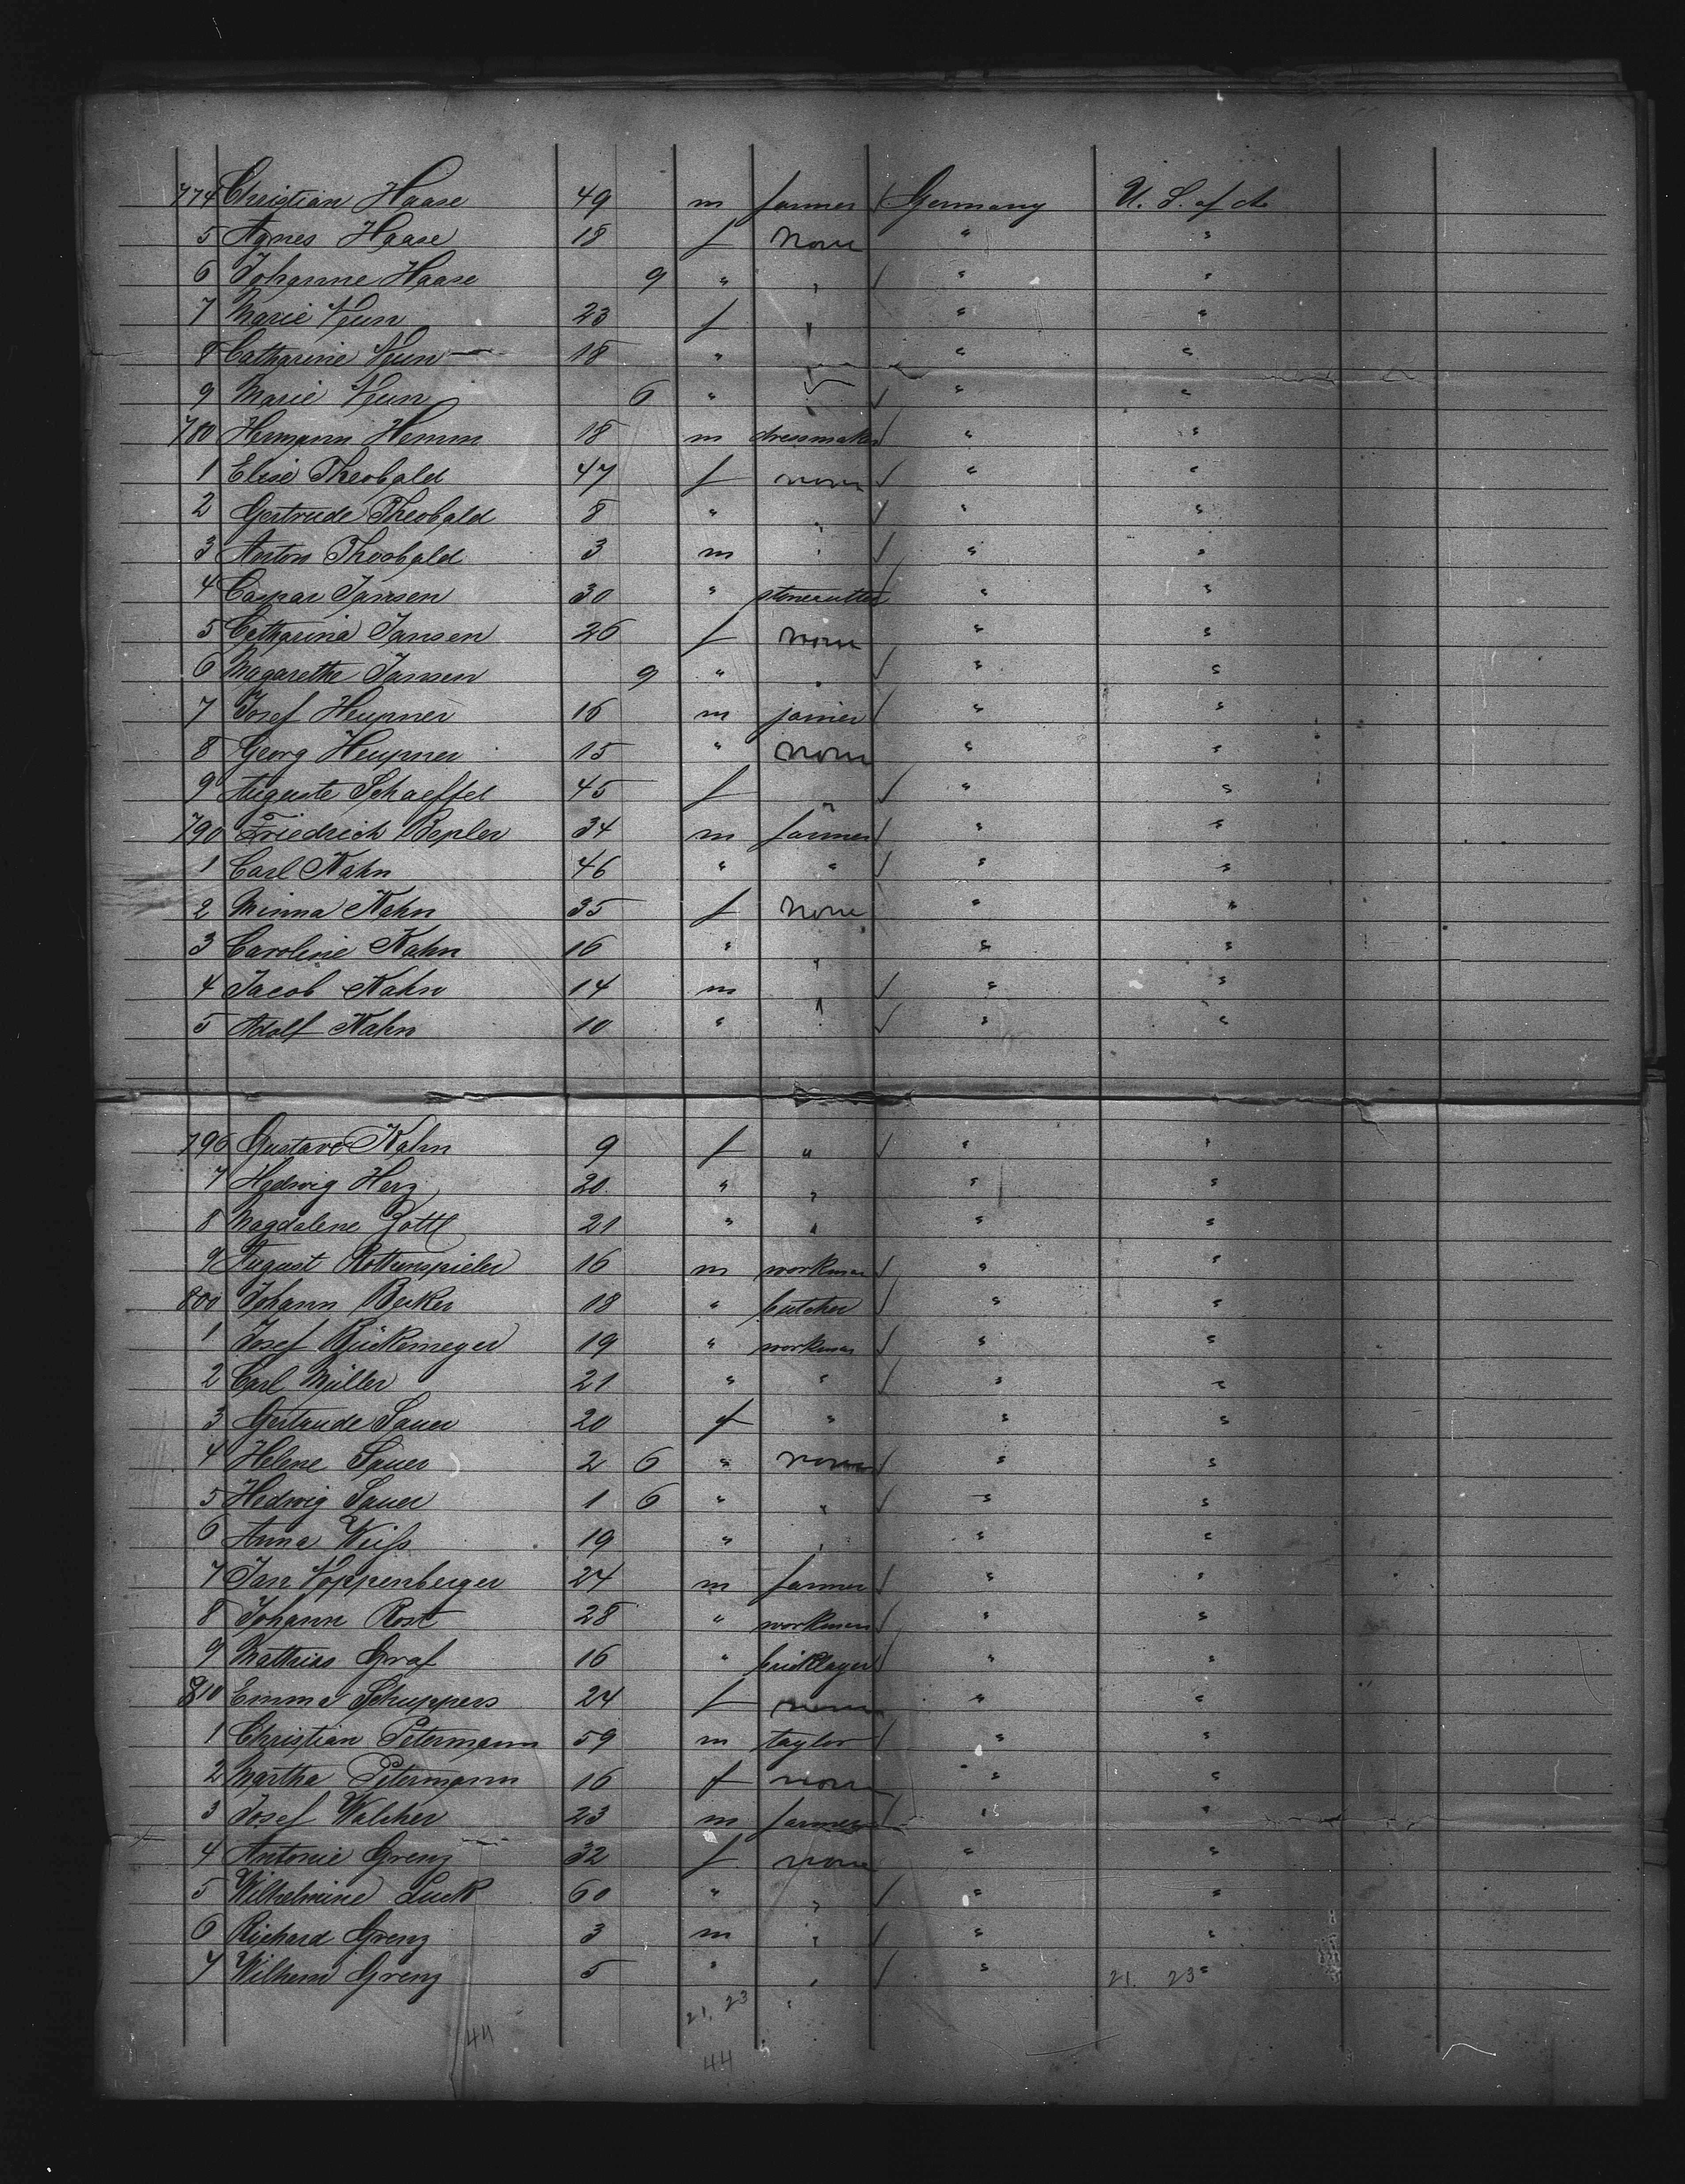 774 Christian Haase 49 m farmer ✓ Germany U. S. of A.
5 Agnes Haase 18 f none " "
6 Johanne Haase 9 " " ✓ " "
7 Marie 23 f " " "
8 Catharine 18 " " " "
9 Marie 6 " " ✓ " "
780 Hermann Hemm 18 m dressmaker ✓ " "
1 Elise Theobald 47 f none ✓ " "
2 Gertrude Theobald 8 " " ✓ " "
3 Anton Theobald 3 m " ✓ " "
4 Caspar Jansen 30 " stonecutter ✓ " "
5 Catharina Jansen 26 f none " "
6 Magarethe Jansen 9 " " ✓ " "
7 Josef Heupner 16 m joiner ✓ " "
8 Georg Heupner 15 " none " "
9 Auguste Schaeffel 45 f ✓ " "
790 Friedrich Bepler 34 m farmer ✓ " "
1 Carl Kahn 46 " " ✓ " "
2 Minna Kahn 35 f none " "
3 Caroline Kahn 16 " " " "
4 Jacob Kahn 14 m " ✓ " "
5 Adolf Kahn 10 " " ✓ " "
796 Gustave Kahn 9 f " ✓ " "
7 Hedwig Herz 20 " " " "
8 Magdalene Zottl 21 " " " "
9 August Rottenspieler 16 m workman ✓ " "
800 Johann Becker 18 " butcher ✓ " "
1 Josef Bückemeyer 19 " workman ✓ " "
2 Carl Müller 21 " " ✓ " "
3 Gertrude Sauer 20 f " " "
4 Helene Sauer 2 6 " none ✓ " "
5 Hedwig Sauer 1 6 " " ✓ " "
6 Anna Weiß 19 " " " "
7 Jan Noppenberger 24 m farmer ✓ " "
8 Johann Rost 28 " workman ✓ " "
9 Mathias Graf 16 " bricklayer ✓ " "
810 Emma Schuppers 24 f none " "
1 Christian Petermann 59 m taylor ✓ " "
2 Martha Petermann 16 f none " "
3 Josef Walcher 23 m farmer ✓ " "
4 Antonie Grenz 32 f none " "
5 Wilhelmine Luck 60 " " ✓ " "
6 Richard Grenz 3 m " ✓ " "
7 Wilhem Grenz 5 " " ✓ " 21. 23 "
21, 23
44 44